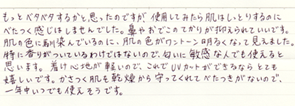 もっとベタベタするかと思ったのですが、使用してみたら肌はしっとりするのに
べたつく感じはしませんでした。鼻やおでこのてかりが抑えられていいです。
肌の色に馴染んでいるのに、肌の色がワントーン明るくなって見えました。
特に香りがついているわけではないので、匂いに敏感な人でも使えると
思います。着け心地が軽いので、これでリパケートができるならとても
嬉しいです。かさつく肌を乾燥から守ってくれてべたつきがないので、
一年中いつでも使えそうです。